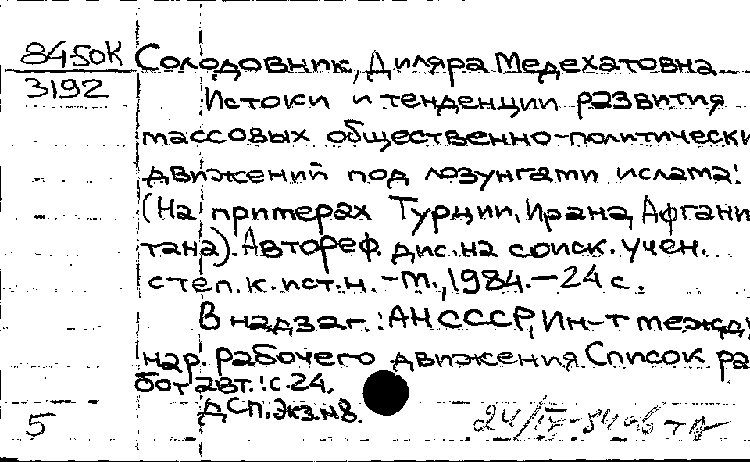 84-50К Солодовник, Диляра Медехатовна
3192 Истоки и тенденции развития
массовых общественно-политически
движений под лозунгами ислама:
(На примерах Турции, Ирана, Афгани
тана). Автореф. дис. на соиск. учен.
степ. к. ист. н. - М., 1984. - 24 с.
В надзаг.: АН СССР, Ин-т межд
нар. рабочего движения. Список ра
бот авт.: с. 24.
ДСП. экз. н 8.
5